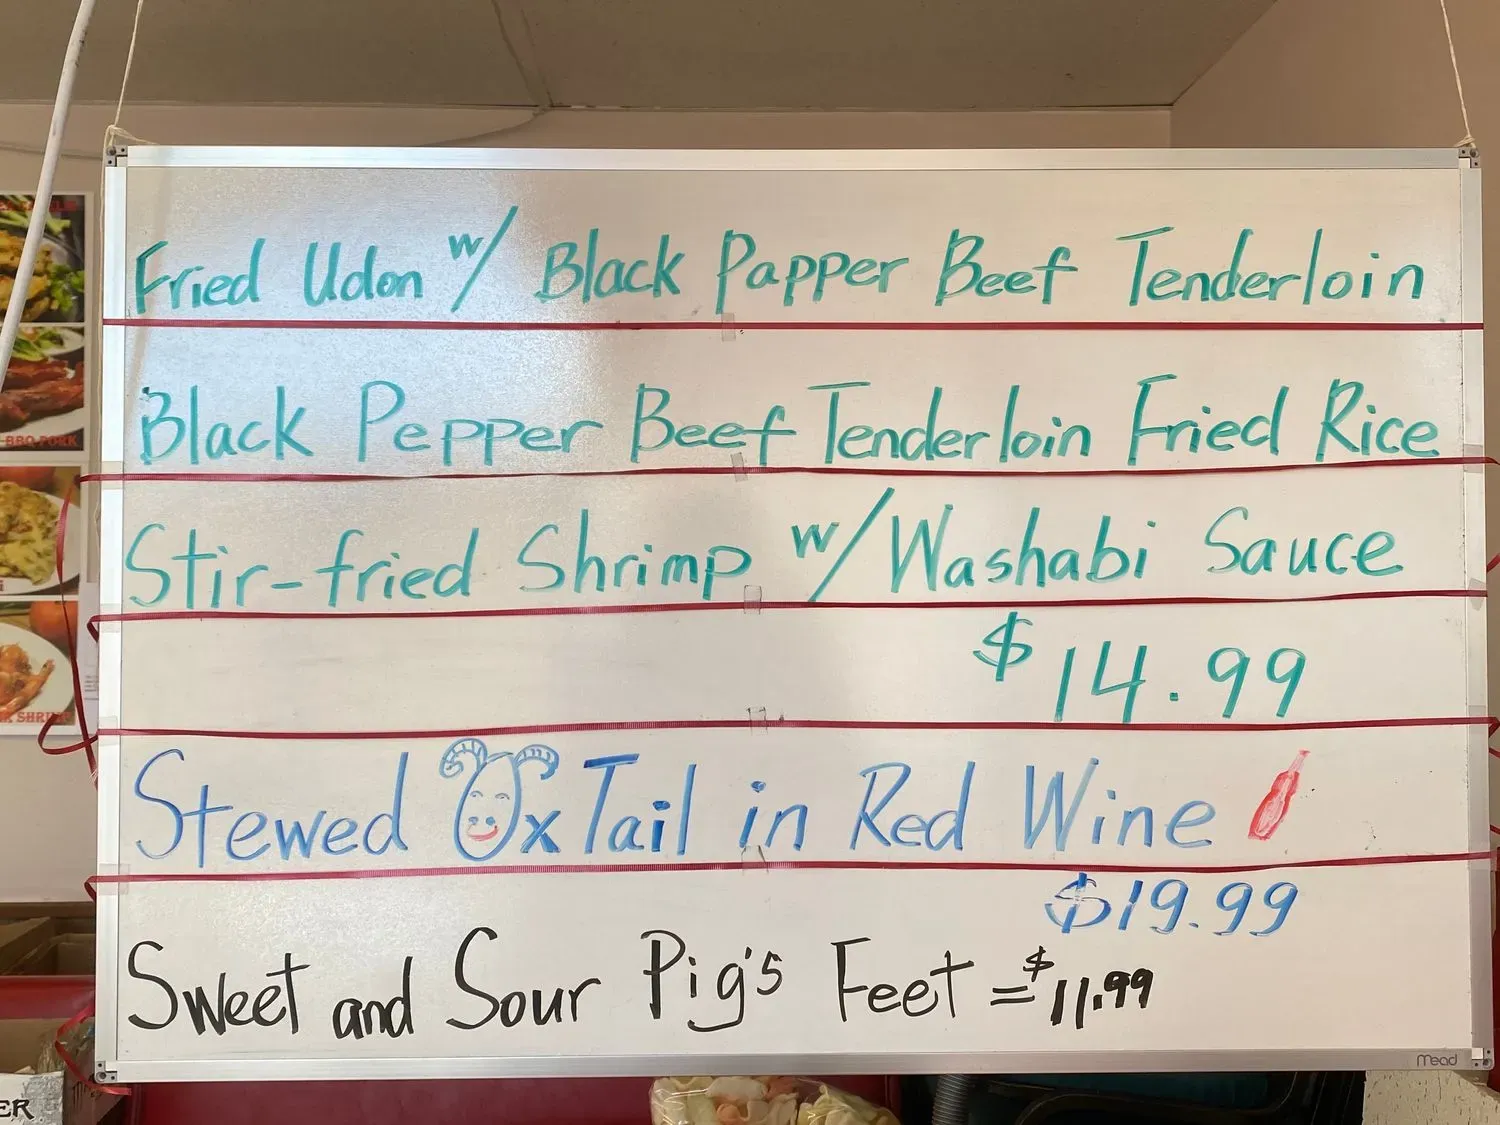 Fried Udon w/ Black Papper Beef Tenderloin
Black Pepper Beef Tenderloin Fried Rice
Stir-fried Shrimp w/ Washabi Sauce
$14.99
Stewed Ox Tail in Red Wine
$19.99
Sweet and Sour Pig's Feet = $11.99
mead
BBQ PORK
ER